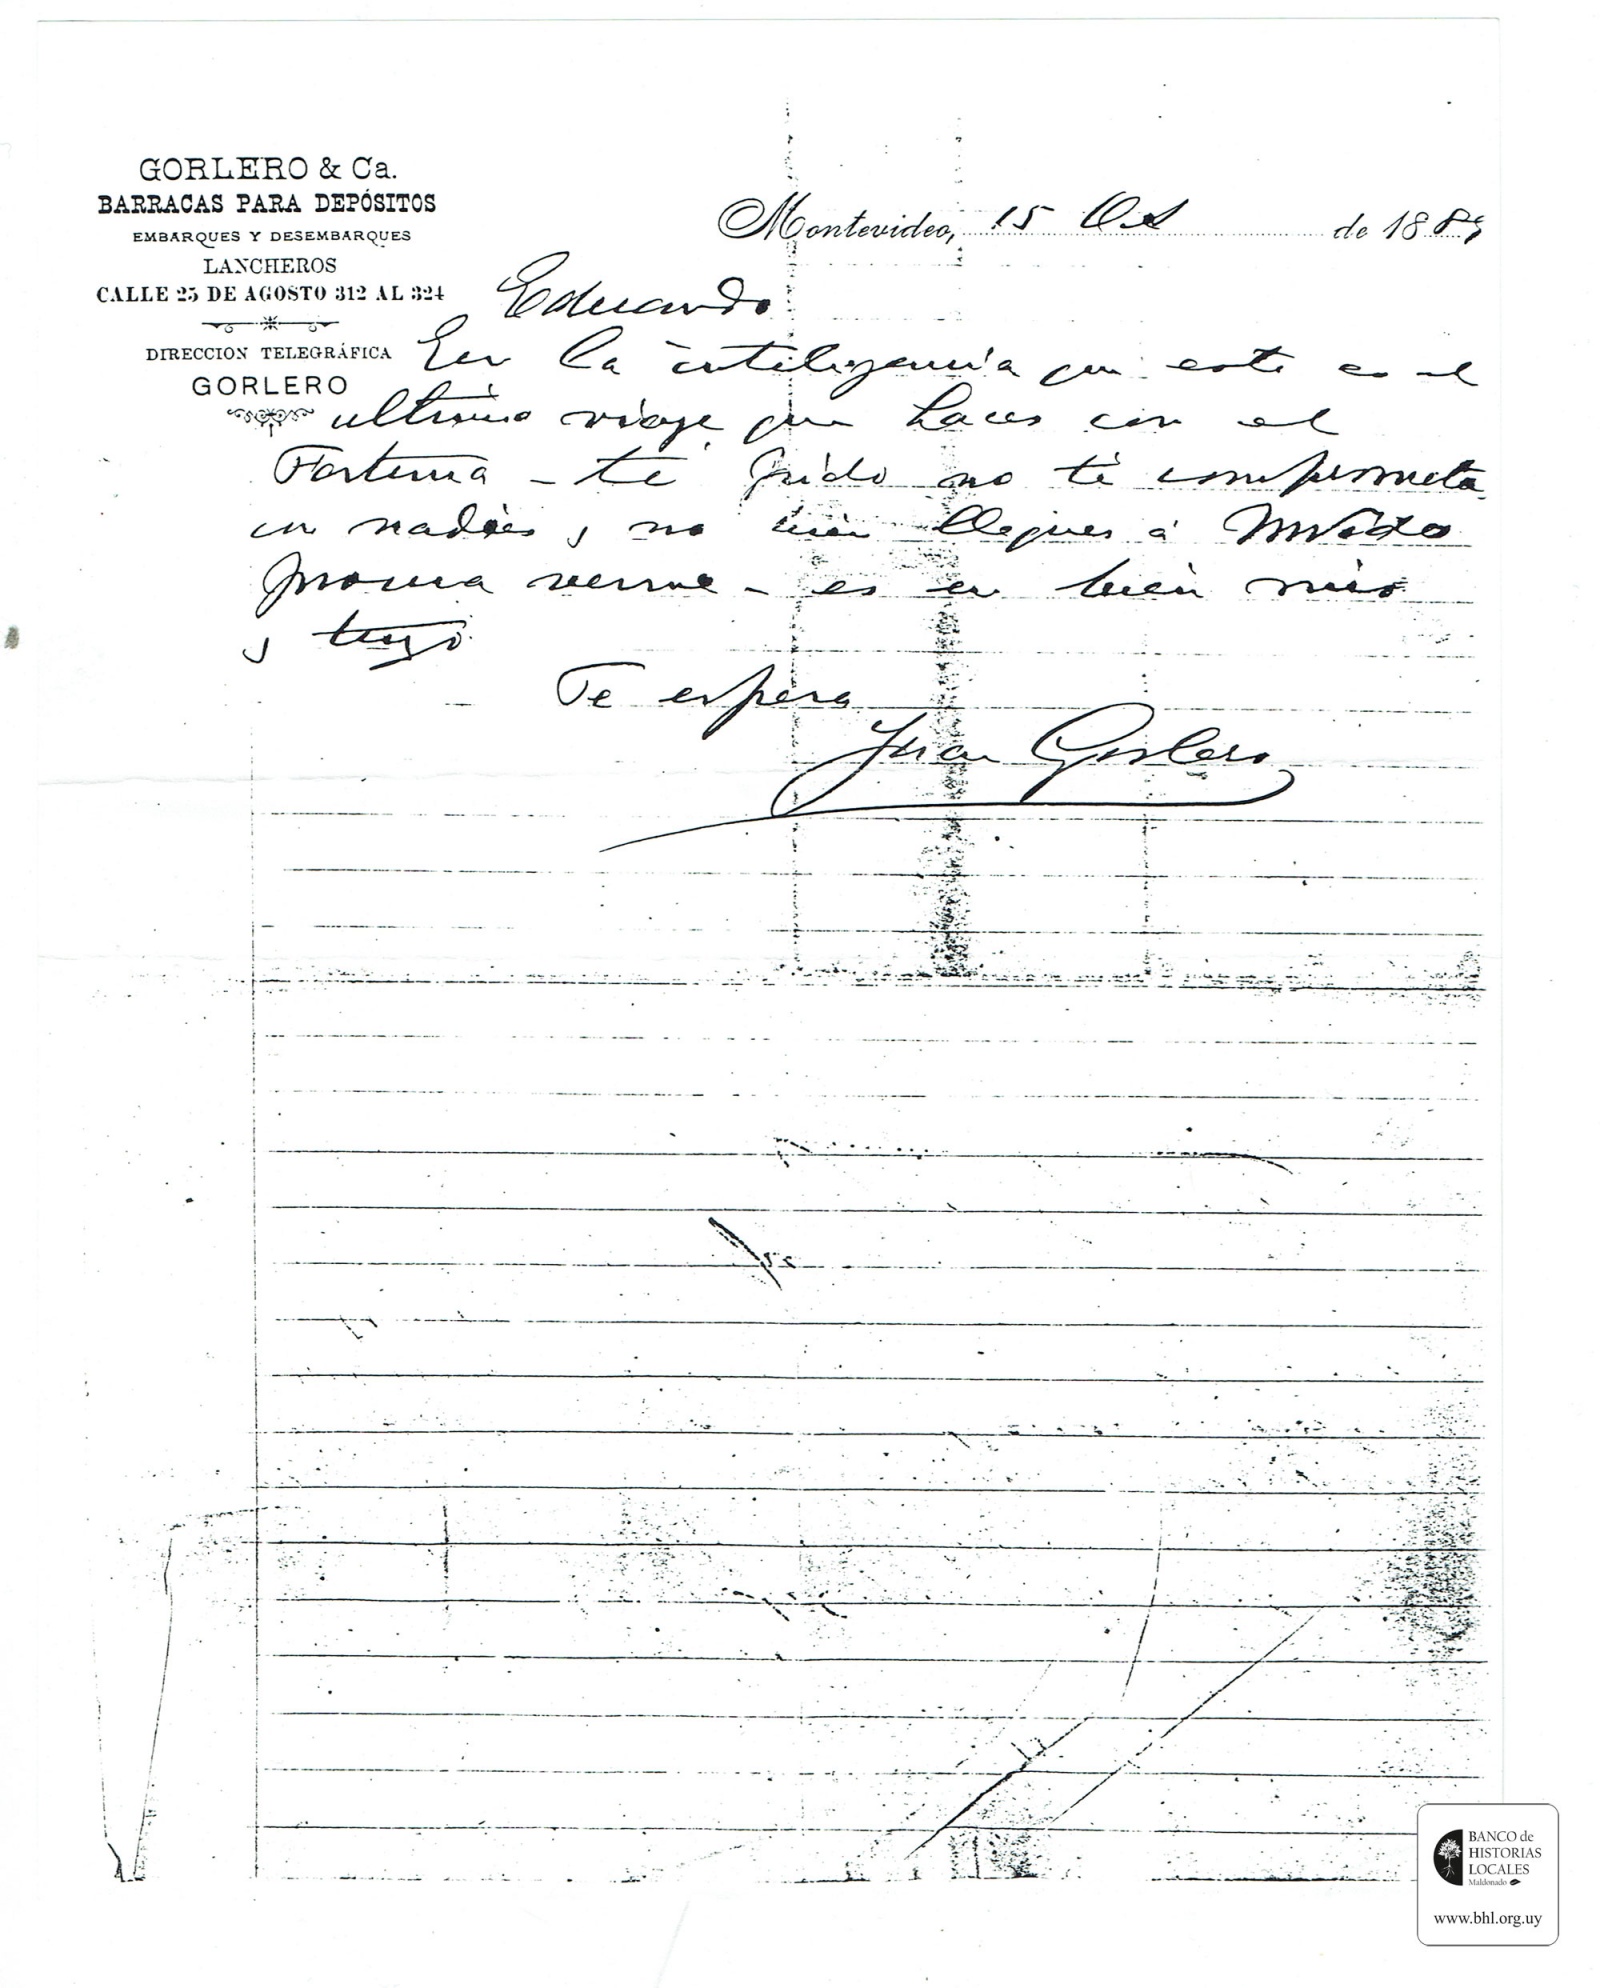 GORLERO & Ca.
BARRACAS PARA DEPÓSITOS
EMBARQUES Y DESEMBARQUES
LANCHEROS
CALLE 25 DE AGOSTO 312 AL 324
DIRECCION TELEGRÁFICA
GORLERO
Montevideo, 15 Oct de 1889
Eduardo
En la inteligencia que este es el
ultimo viaje que haces con el
Fortuna - te pido no te comprometa
con nadies y no bien llegues á Mvideo
procura verme - es en bien mio
y tuyo
Te espera
Juan Gorlero
BANCO de
HISTORIAS
LOCALES
Maldonado
www.bhl.org.uy